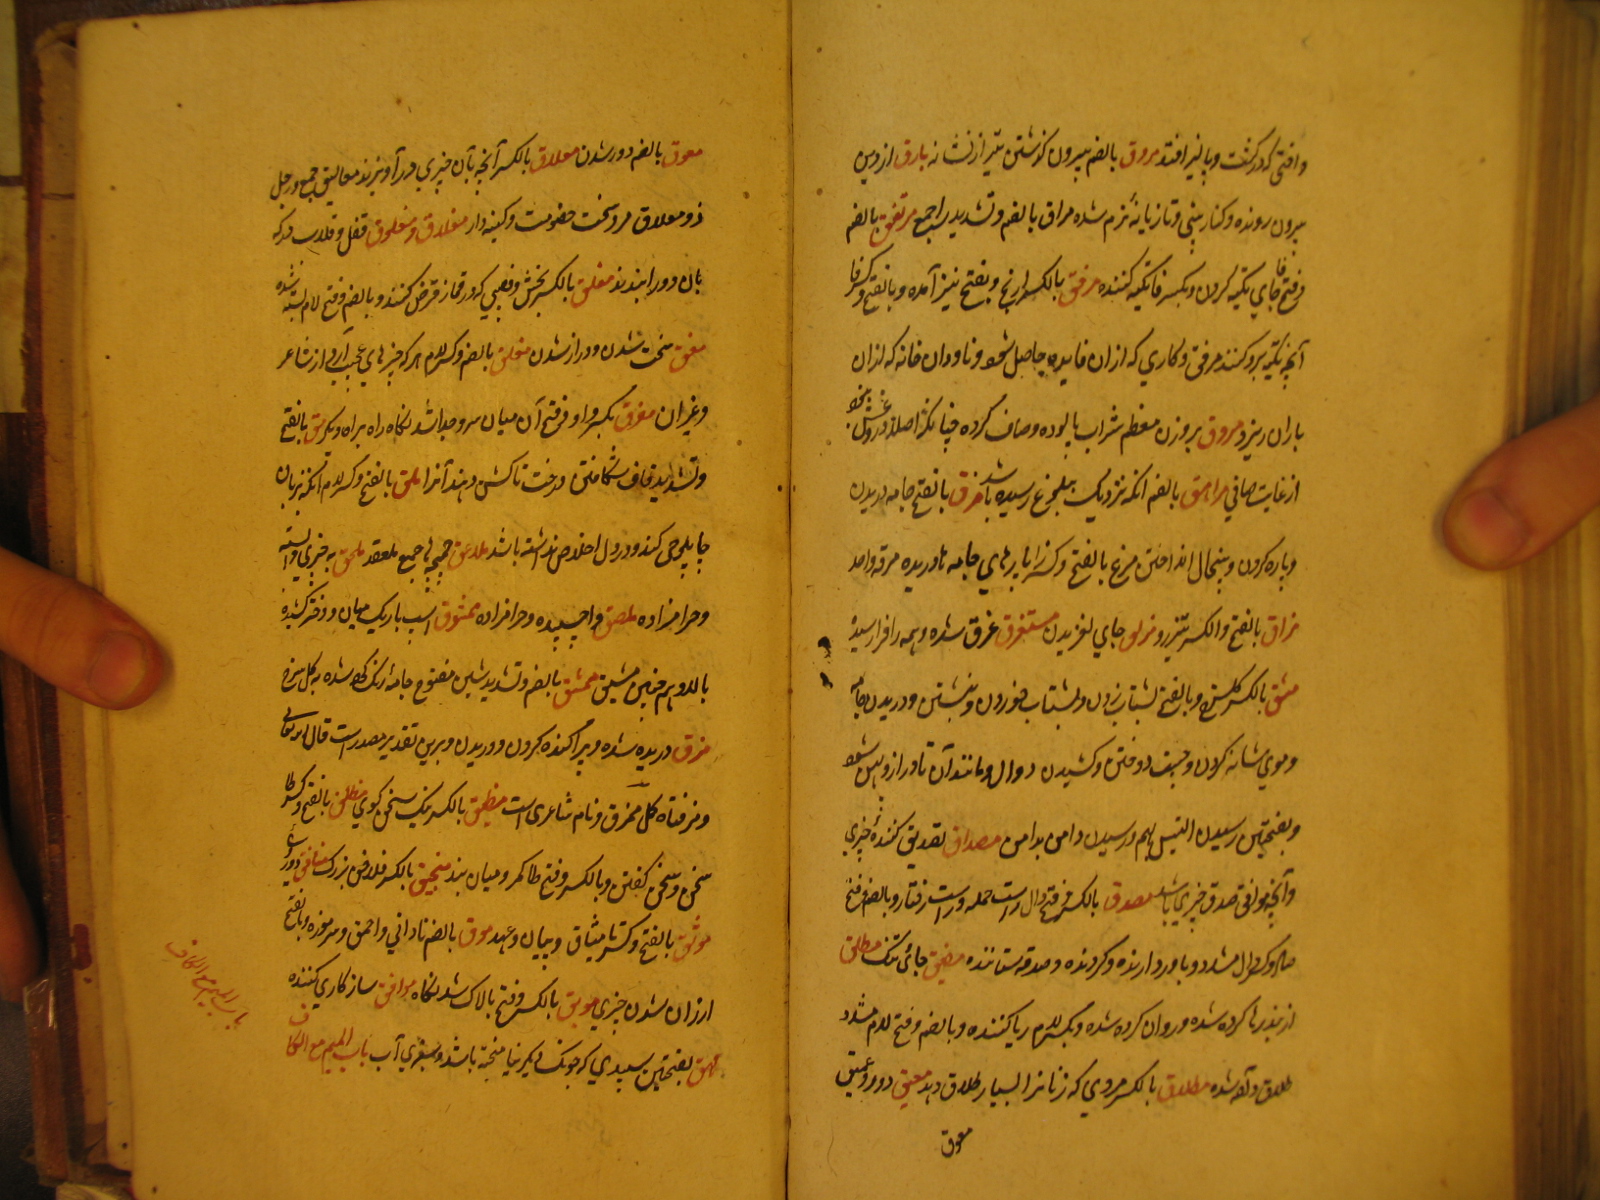 وافتی که درگذشت و پالیز افتد مروق بالضم بیرون گذشتن تیر از نشانه بارق از دین
بیرون رونده و کنار بینی و تازیانهٔ نرم شده مراق بالضم و تشدید را جمع مرتفق بالضم
و فتح فا جای تکیه کردن و بکسر فا تکیه کننده مرفق بالکسر آرنج و بفتح نیز آمده و بالفتح و کسر فا
آنچه تکیه برو کنند مرفق و کاری که از آن فایده حاصل شود و ناودان خانه که از آن
باران ریزد مروق بر وزن معظم شراب پالوده و صاف کرده چنانکه اصلا درو غش نبود
از غایت صافی مراهق بالضم آنکه نزدیک ببلوغ رسیده باشد مزق بالفتح جامه دریدن
و پاره کردن و پیخال انداختن مرغ بالفتح و کسر زا پارهای جامه دریده مزقه واحد
مزاق بالفتح والکسر تیزرو مزلق جای لغزیدن مستغرق غرق شده و همه را فرا رسیده
مشق بالکسر گل سرخ و بالفتح بشتاب زدن و بشتاب خوردن و نبشتن و دریدن جامه
و موی شانه کردن و جیب دوختن و کشیدن دوال و مانند آن تا دراز و لین شود
و بفتحتین رسیدن الیتین بهم و رسیدن دامن بدامن مصداق تصدیق کنندهٔ چیزی
و آنچه موافق صدق چیزی باشد مصدق بالکسر و فتح دال راست حمله و راست رفتار و بالضم و فتح
صاد و کسر دال مشدد و باور دارنده و گرونده و صدقه ستاننده مضیق جائی تنگ مطلق
از بند رها کرده شده و روان کرده شده و بکسر لام رها کننده و بالضم و فتح لام مشدد
طلاق داده شده مطلاق بالکسر مردی که زنانرا بسیار طلاق دهد معیق دور و عمیق
معوق
معوق بالضم دور شدن معلاق بالکسر آنچه بآن چیزی در آویزند معالیق جمع و رجل
ذو معلاق مرد سخت خصومت و کینه دار مغلاق و مغلوق قفل و قلاب در که
بان در را ببندند مغلق بالکسر بخش و نصیبی که در قمار قرض کنند و بالضم و فتح لام بسته شده
مغق سخت شدن و دراز شدن مفلق بالضم و کسر لام هر که چیزهای عجیب آرد از شاعر
و غیر آن مفرق بکسر را و فتح آن میان سر و جدا شدنگاه راه براه دیگر مق بالفتح
و تشدید قاف شگافتن درخت تا کشن دهند آنرا ملق بالفتح و کسر لام آنکه بزبان
چاپلوسی کند و در دل اخلاص نداشته باشد ملاعق چمچها جمع ملعقه ملحق بچیزی وابسته
و حرامزاده ملصق واچسپیده و حرامزاده ممشوق اسپ باریک میان و دختر کشیده
بالا و همچنین مشیق ممشق بالضم و تشدید شین مفتوح جامهٔ رنگ کرده شده بگل سرخ
مزق دریده شده و پراگنده کردن و دریدن و برین تقدیر مصدر است قال الله تعالی
و مزقناه کل ممزق و نام شاعری است منطیق بالکسر نیک سخن گوی منطق بالفتح و کسر طا
سخن و سخن گفتن و بالکسر و فتح طا کمر و میان بند منجنیق بالکسر فلاخن بزرگ منافق دوروی
موثق بالفتح و کسر ثا میثاق و پیمان و عهد موق بالضم نادانی و احمق و سرموزه و بالفتح
ارزان شدن چیزی موبق بالکسر و فتح با هلاک شدنگاه موافق سازگاری کننده
مهق بفتحتین سپیدی که چونک دیگر با نیامیخته باشد و سبزی آب باب المیم مع الکاف
باب المیم مع الکاف